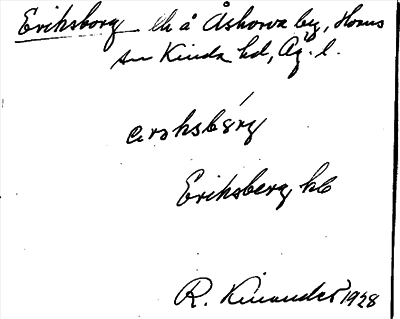 Eriksborg lh å Åskorva by, Horns
sn Kinda hd, Ög. l.
Eriksberg hb
R. Kinander 1928